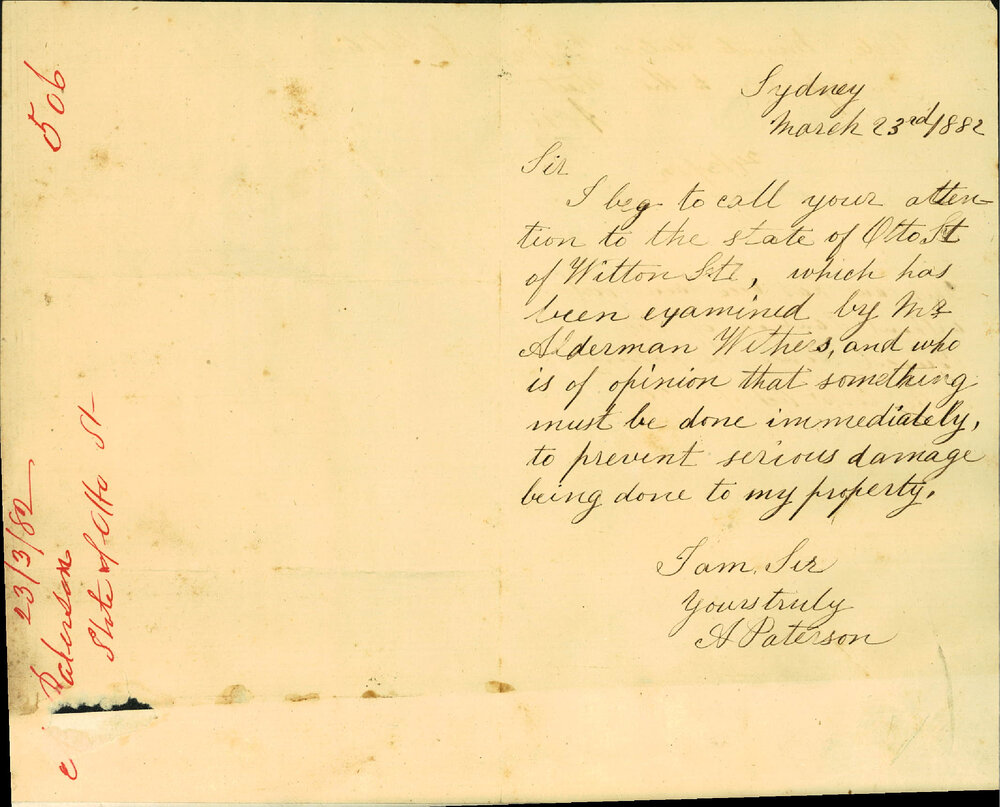 506
23/3/82
Paterson
State of Otto St
c
Sydney
March 23rd/1882
Sir
I beg to call your atten-
tion to the state of Otto St
of Witton St, which has
been examined by Mr
Alderman Withers, and who
is of opinion that something
must be done immediately,
to prevent serious damage
being done to my property.
I am, Sir
Yours truly
A Paterson